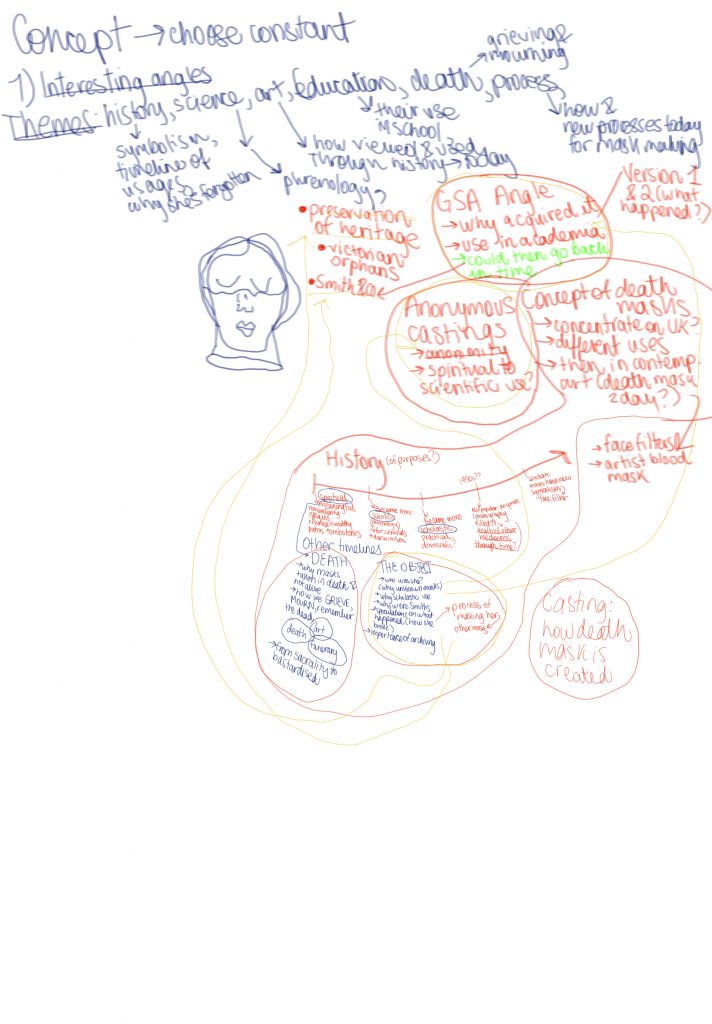 Concept → choose constant
1) Interesting angles
Themes: history, science, art, Education, death, process,
grieving &
mourning
symbolism,
timeline of
usages,
why she's forgotten
phrenology,
how viewed & used
through history → today
their use
in school
how &
new processes today
for mask making
GSA Angle
→ why acquired it
→ use in academia
→ could then go back
in time
Version 1
& 2 (what
happened?)
• preservation
of heritage
• victorian
orphans
• Smith & Co
Anonymous
castings
→ anonmity
→ spiritual to
scientific use?
Concept of death
masks
→ concentrate on UK?
→ different uses
→ then in contemp.
art (death mask
2day?)
→ face filters
→ artist blood
mask
History (of purposes?)
spiritual
→ became more
scientific
phrenology
became more
scholastic
practical,
democratic
photography
killed it
death of other
mediums
through time?
face filter
Other timelines
DEATH
→ why masks
taken in death &
not alive
→ how we GRIEVE,
MOURN, remember
the dead
art
death
funerary
→ from sacrality to
bastardised
THE OBJECT
→ who was she?
(why unknown masks)
→ why scholastic use
→ why were Smiths
→ speculations on what
happened (how she
broke)
→ importance of archiving
→ process of
making her,
other masks
Casting:
how death
mask is
created